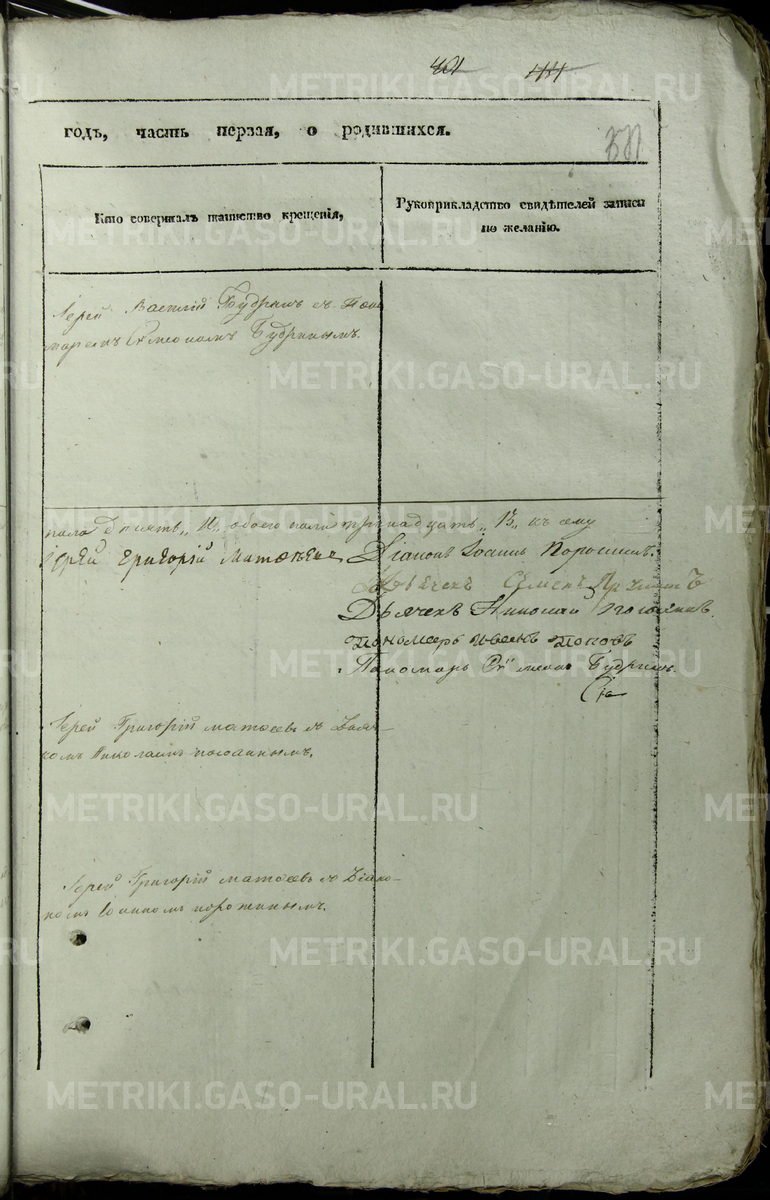 401 444
годъ, часть первая, о родившихся.
Кто совершалъ таинство крещенія,
Рукоприкладство свидѣтелей записи
по желанію.
Іерей Василій Будринъ съ Поно
маремъ Симеономъ Будринымъ.
пола десять, 10, обоего пола тринадцать, 13, къ сему
Іерей Григорій Матѳѣевъ
Діаконъ Іоаннъ Порошинъ.
Дьячекъ Семенъ
Дьячекъ Николай
Пономарь Иванъ Поповъ
Пономарь Симеонъ Будринъ.
Іерей Григорій Матѳѣевъ съ Дьяч-
комъ Николаемъ
Іерей Григорій Матѳѣевъ съ Діако-
номъ Іоанномъ Порошинымъ.
METRIKI.GASO-URAL.RU